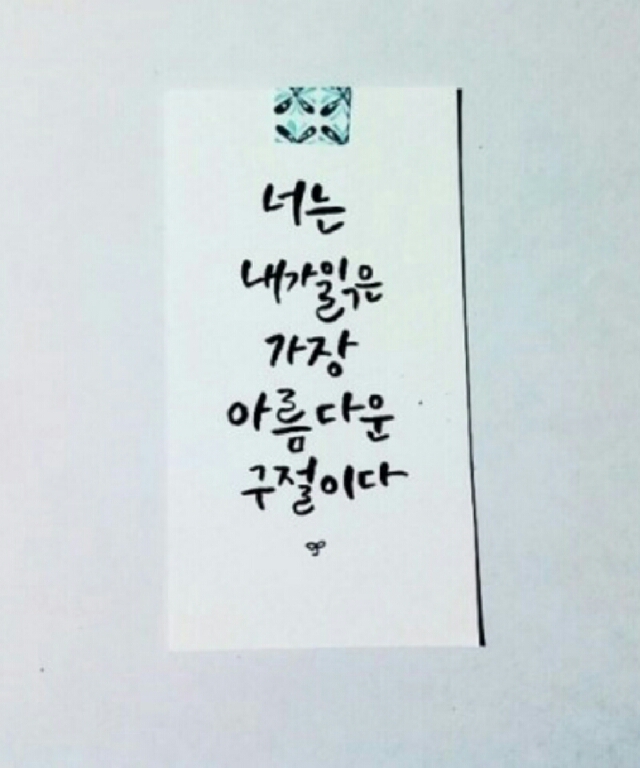 너는
내가읽은
가장
아름다운
구절이다